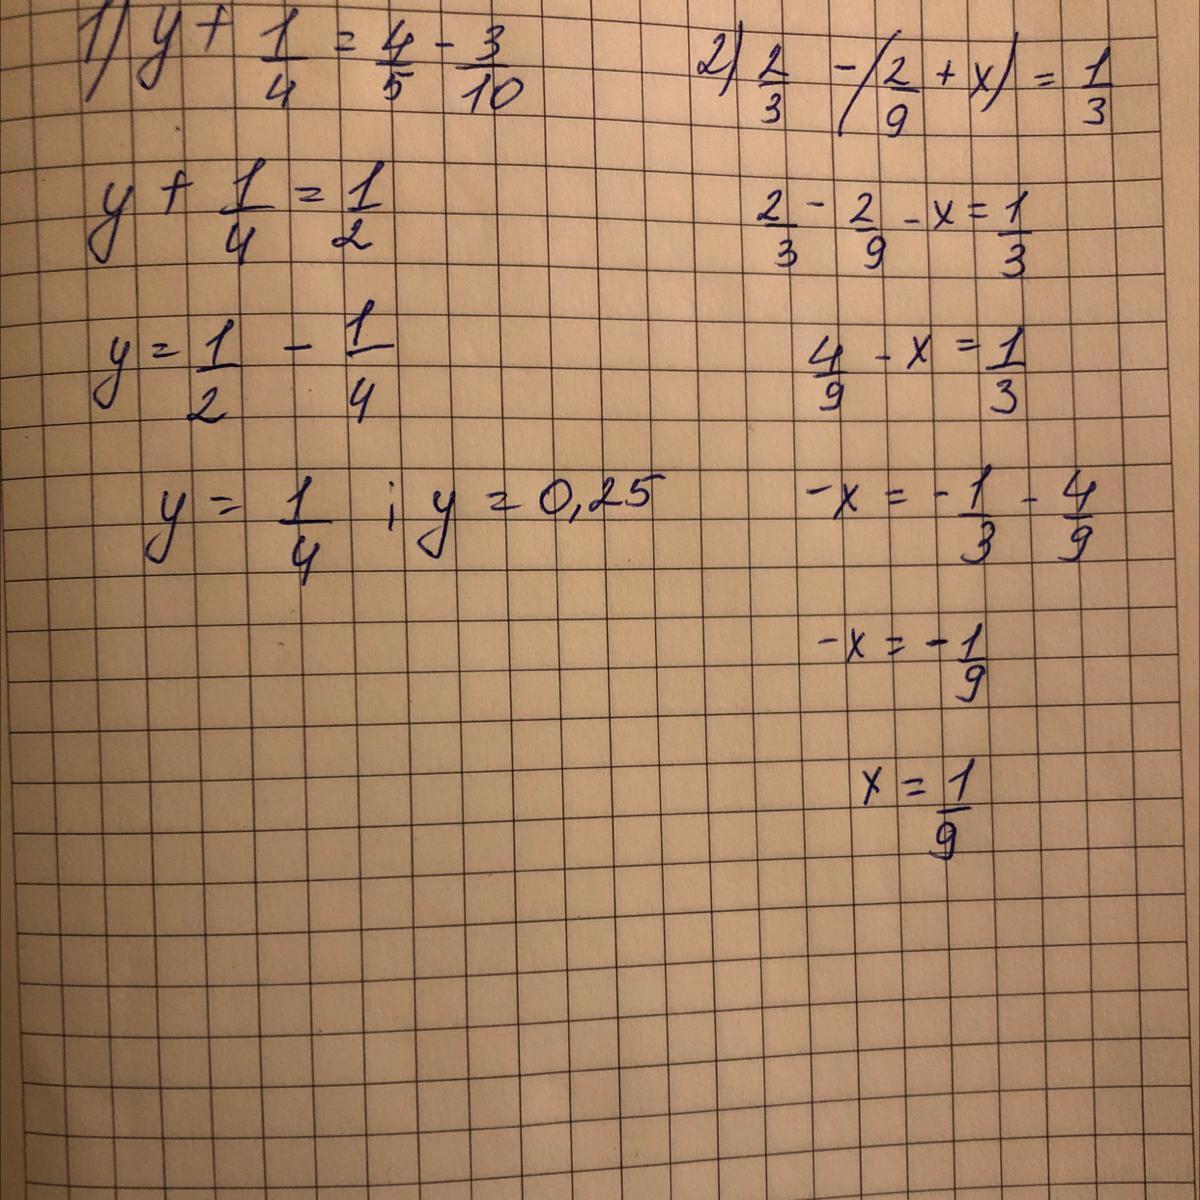 1) y + 1/4 = 4/5 - 3/10
y + 1/4 = 1/2
y = 1/2 - 1/4
y = 1/4 ; y = 0,25
2) 2/3 - (2/9 + x) = 1/3
2/3 - 2/9 - x = 1/3
4/9 - x = 1/3
-x = -1/3 - 4/9
-x = -1/9
x = 1/9